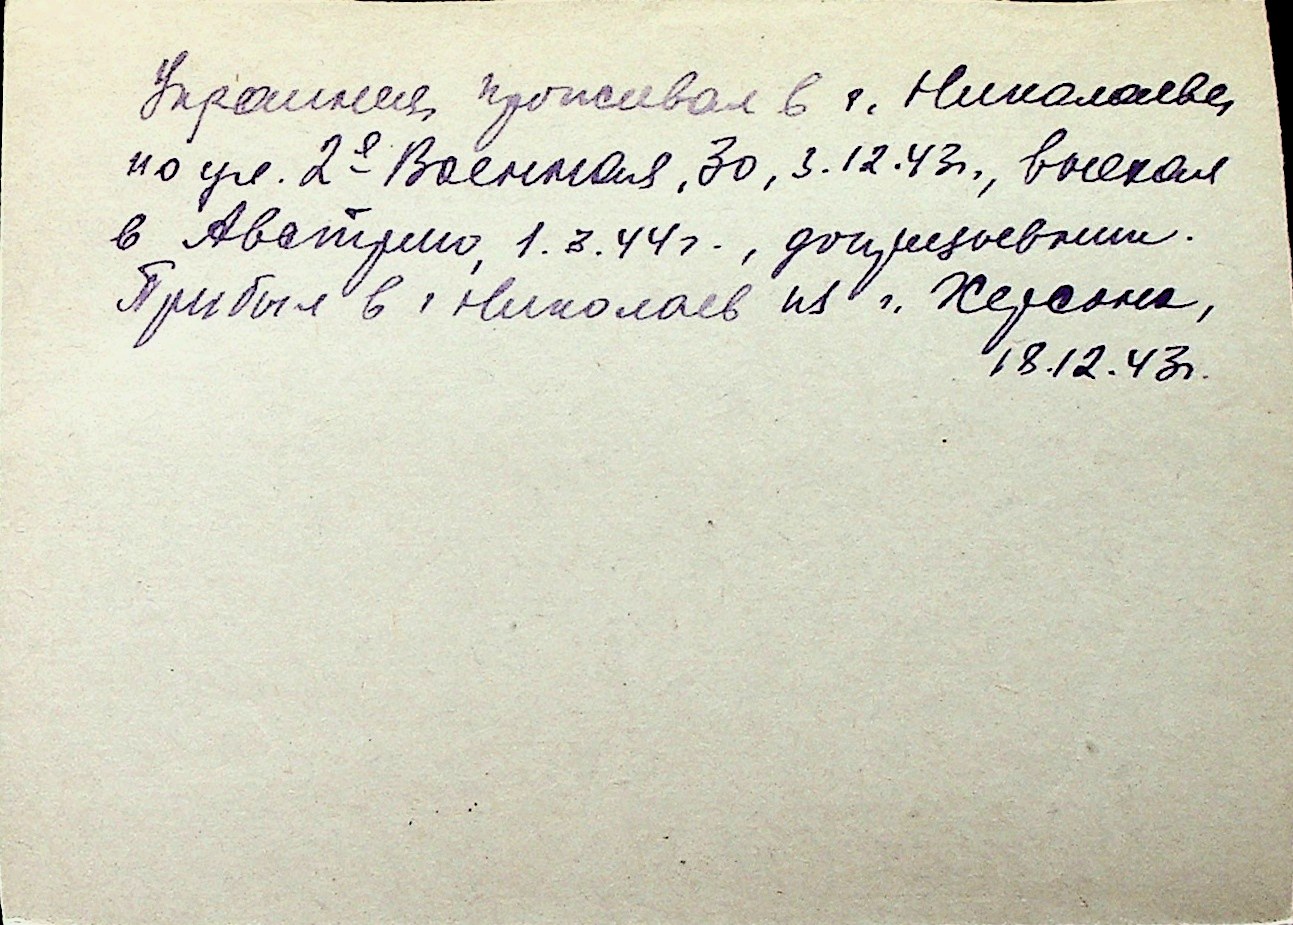 Украинец, проживал в г. Николаеве,
по ул. 2я Военная, 30, 3.12.43г., выехал
в Австрию, 1.3.44г.,
Прибыл в г Николаев из г. Херсона,
18.12.43г.